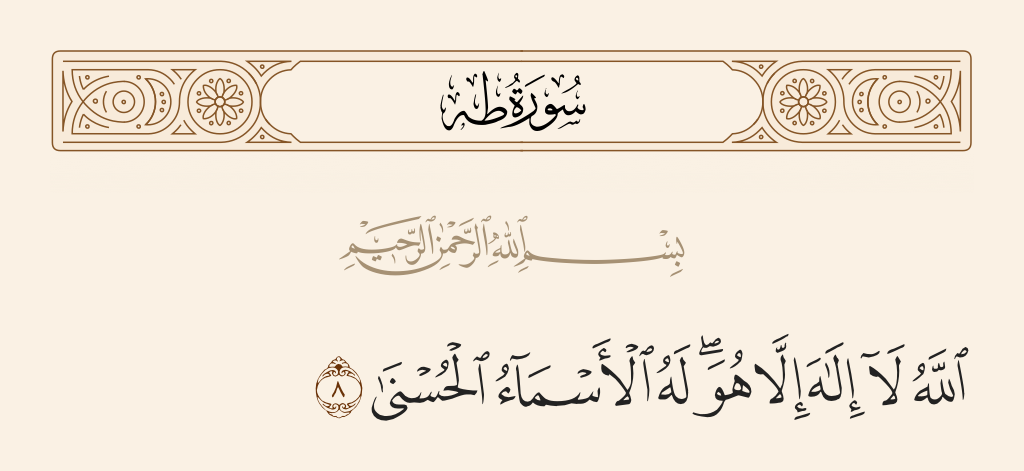 سُورَةُ طه
بِسْمِ ٱللَّهِ ٱلرَّحْمَٰنِ ٱلرَّحِيمِ
ٱللَّهُ لَآ إِلَٰهَ إِلَّا هُوَ ۖ لَهُ ٱلْأَسْمَآءُ ٱلْحُسْنَىٰ ٨